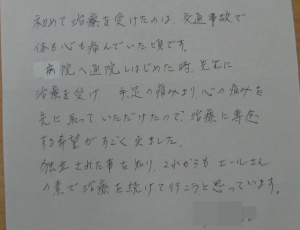 初めて治療を受けたのは、交通事故で
体も心も痛んでいた頃です。
病院へ通院しはじめた時、先生に
治療を受け 手足の痛みより心の痛みを
先に取っていただけたので、治療に専念
する希望がすごく出ました。
独立された事を知り、これからもエールさん
の素で治療を続けて行こうと思っています。